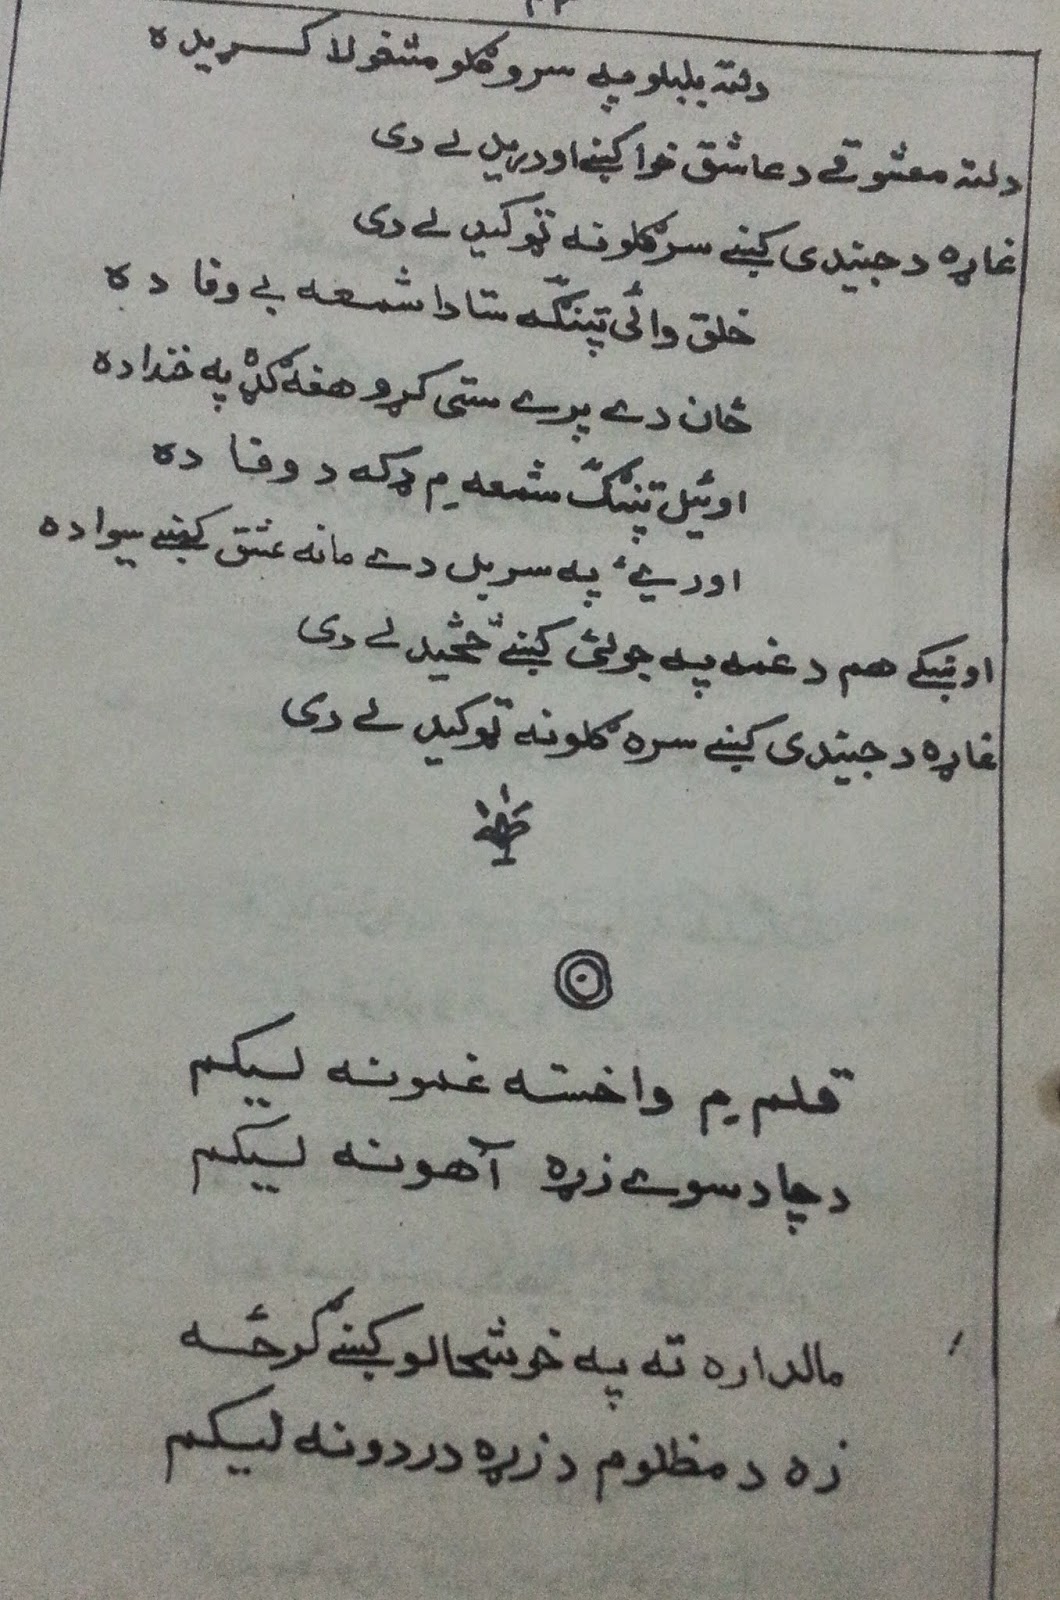 دلته بلبلو په سرو ګلو مشغولا کریده
دلته معشوقے د عاشق خوا کښے اودریدلے دی
غاړه د جیندی کښے سره ګلونه ټوکیدلے دی
خلق وائی پتنګه ستا دا شمعه بے وفا ده
ځان دے پرے ستی کړو هغه ګډه په خندا ده
اوئیل پتنګ شمعه م ډکه د وفا ده
اور یے په سر بل دے مانه عشق کښے سیوا ده
اوښکے هم د غمه په جولئ کښے څڅیدلے دی
غاړه د جیندی کښے سره ګلونه ټوکیدلے دی
قلم م واخسته غمونه لیکم
د چا د سوے زړه آهونه لیکم
مالداره ته په خوشحالو کښے ګرځه
زه د مظلوم د زړه دردونه لیکم